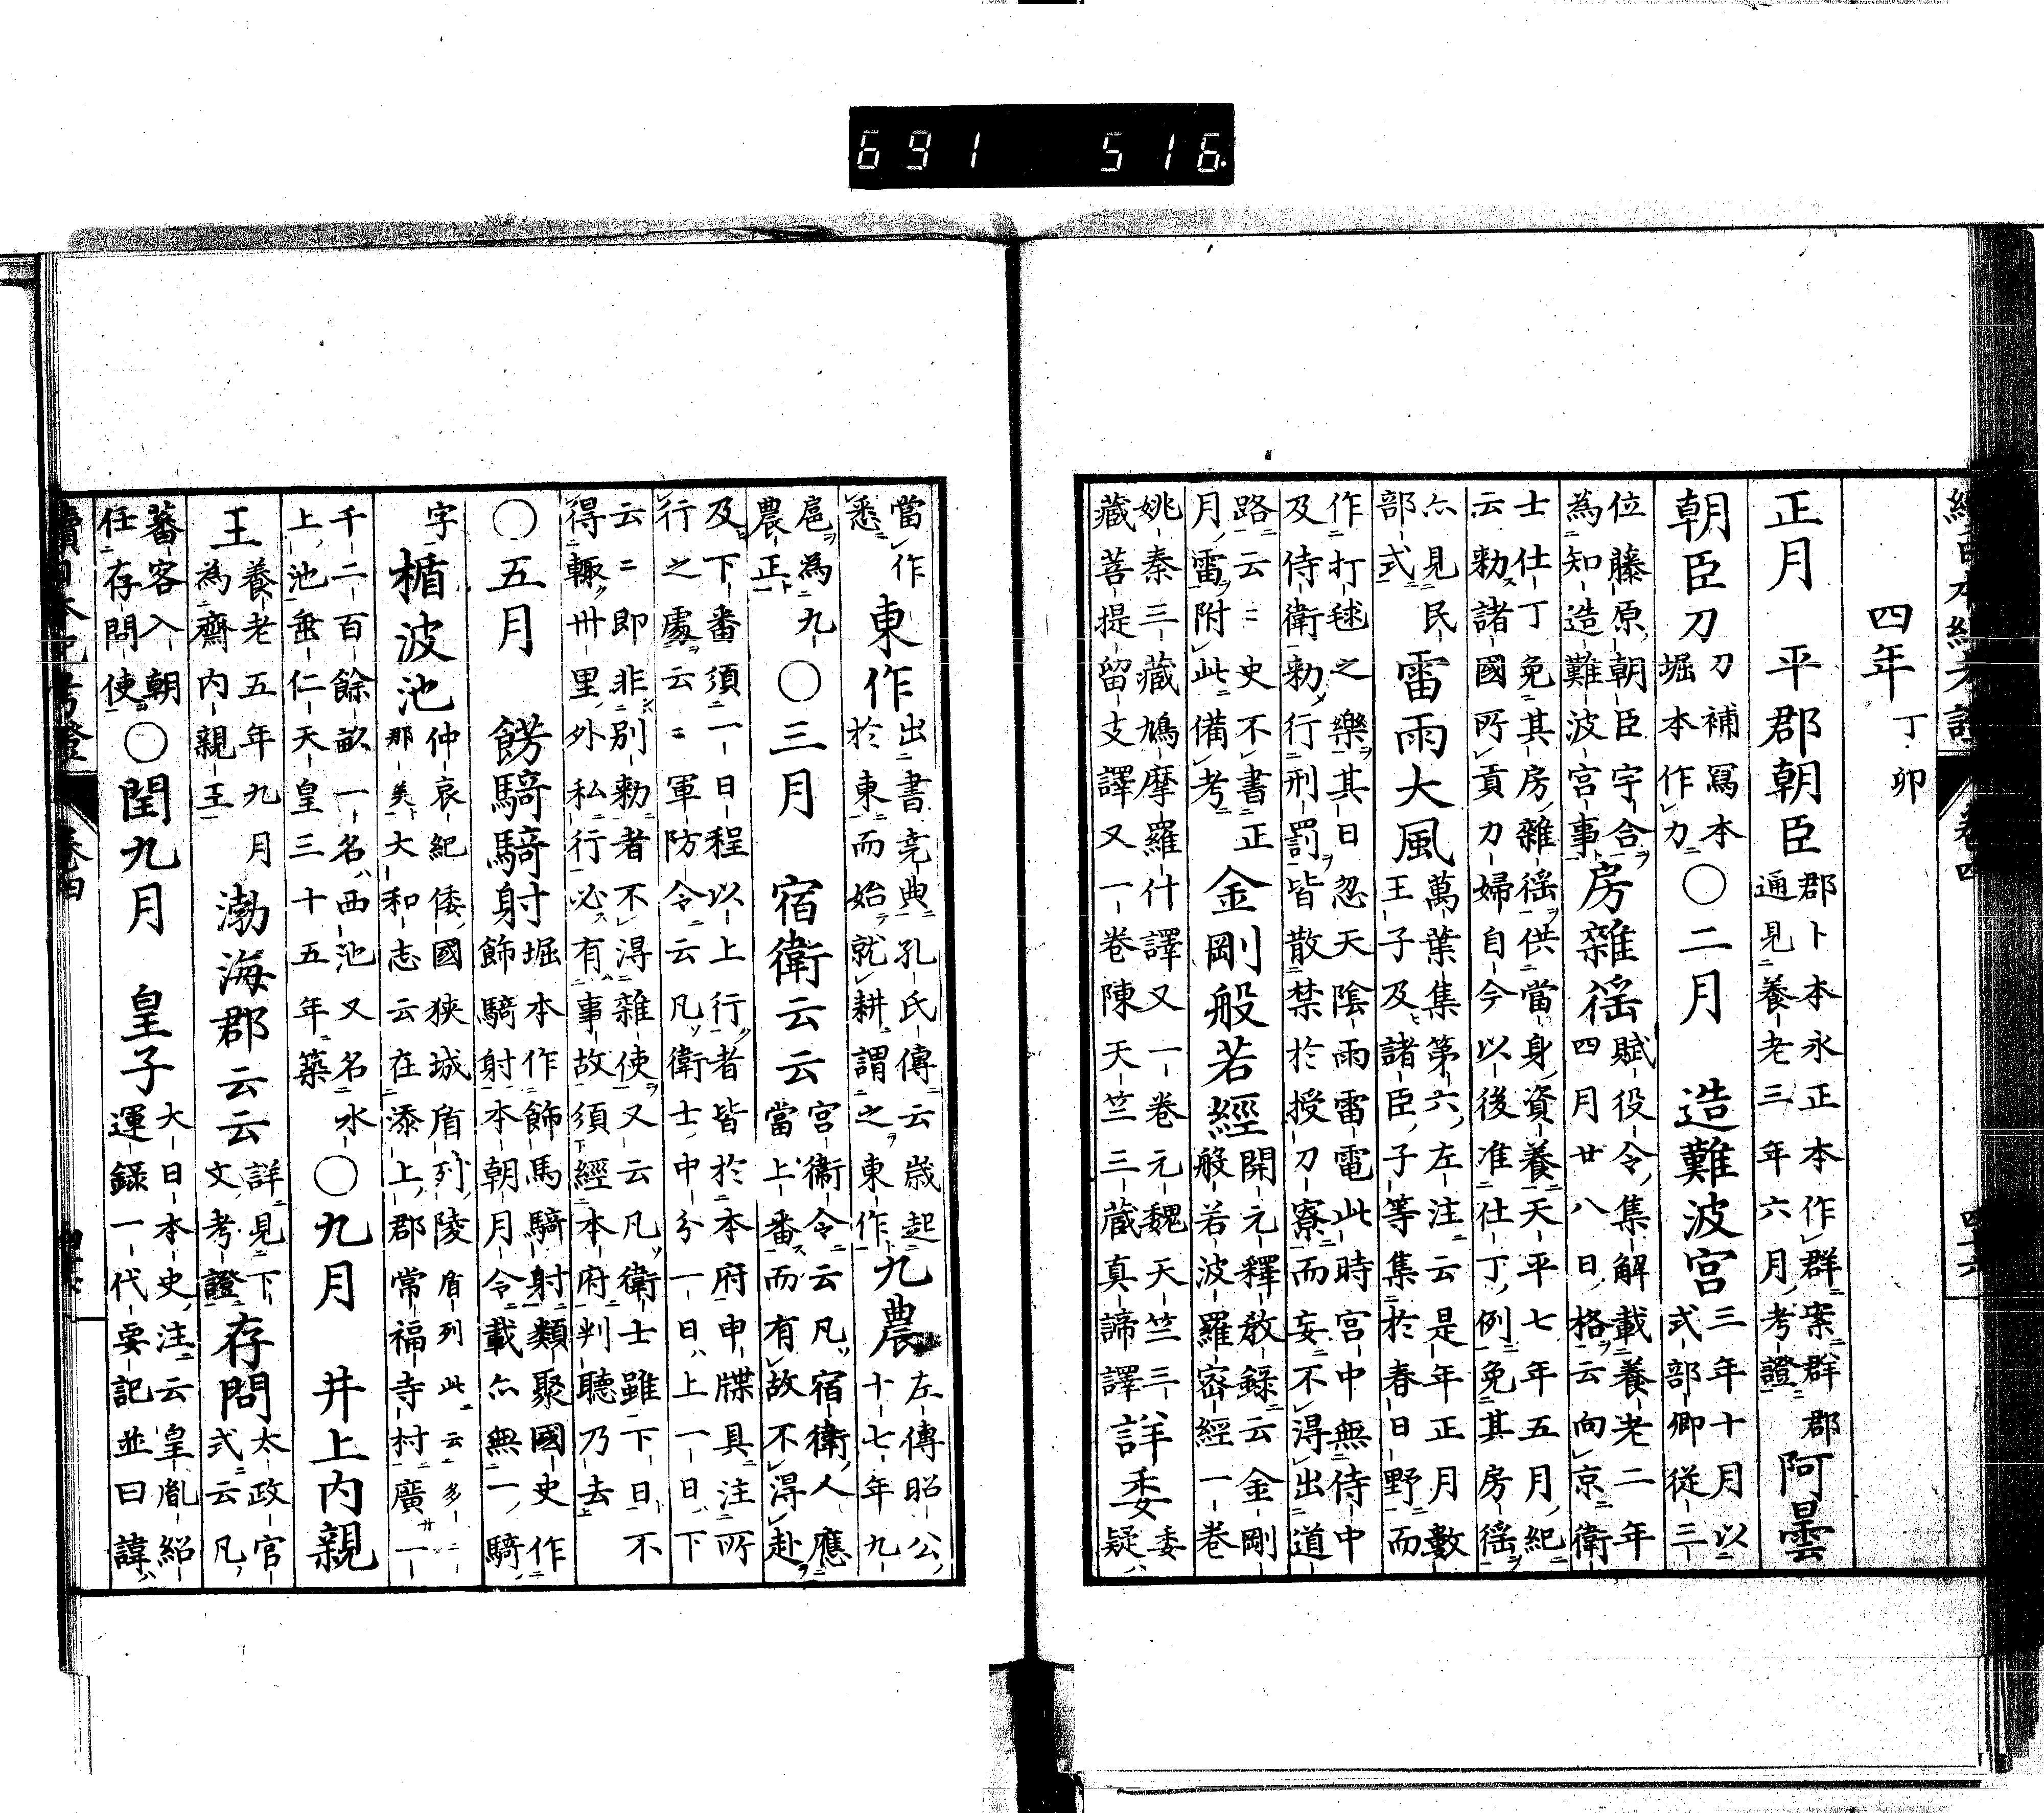 691 516.
四年 丁卯
正月 平郡朝臣 郡卜本永正本作群案群郡
通見養老三年六月考證 阿曇
朝臣刀 刀補寫本
堀本作力 ○二月 造難波宮 三年十月以
式部卿從三
位藤原朝臣宇合
為知造難波宮事 房雜徭 賦役令集解載養老二年
四月廿八日格云向京衛
士仕丁免其房雜徭供當身資養天平七年五月紀
云勅諸國所貢力婦自今以後准仕丁例免其房徭
亦見民
部式 雷雨大風 萬葉集第六左注云是年正月數
王子及諸臣子等集於春日野而
作打毬之樂其日忽天陰雨雷電此時宮中無侍中
及侍衛勅行刑罰皆散禁於授刀寮而妄不得出道
路云云史不書正
月雷附此備考 金剛般若經 開元釋教錄云金剛
般若波羅密經一卷
姚秦三藏鳩摩羅什譯又一卷元魏天竺三
藏菩提留支譯又一卷陳天竺三藏真諦譯 詳委 委
疑
當作
悉 東作 出書堯典孔氏傳云歲起
於東而始就耕謂之東作 九農 左傳昭公
十七年九
扈為九
農正 ○三月 宿衛云云 宮衞令云凡宿衛人應
當上番而有故不得赴
及下番須一日程以上行者皆於本府申牒具注所
行之處云云軍防令云凡衛士中分一日上一日下
云云即非別勅者不得雜使又云凡衛士雖下日不
得輙卅里外私行必有事故須經本府判聽乃去
○五月 餝騎騎射 堀本作飾馬騎射類聚國史作
飾騎射本朝月令載亦無一騎
字 楯波池 仲哀紀倭國狹城盾列陵盾列此云多二
那美大和志云在添上郡常福寺村廣一
千二百餘畝一名西池又名水
上池垂仁天皇三十五年築 ○九月 井上内親
王 養老五年九月
為齋内親王 渤海郡云云 詳見下
文考證 存問 太政官
式云凡
蕃客入朝
任存問使 ○閏九月 皇子 大日本史注云皇胤紹
運錄一代要記並曰諱
續日本紀考證 卷四